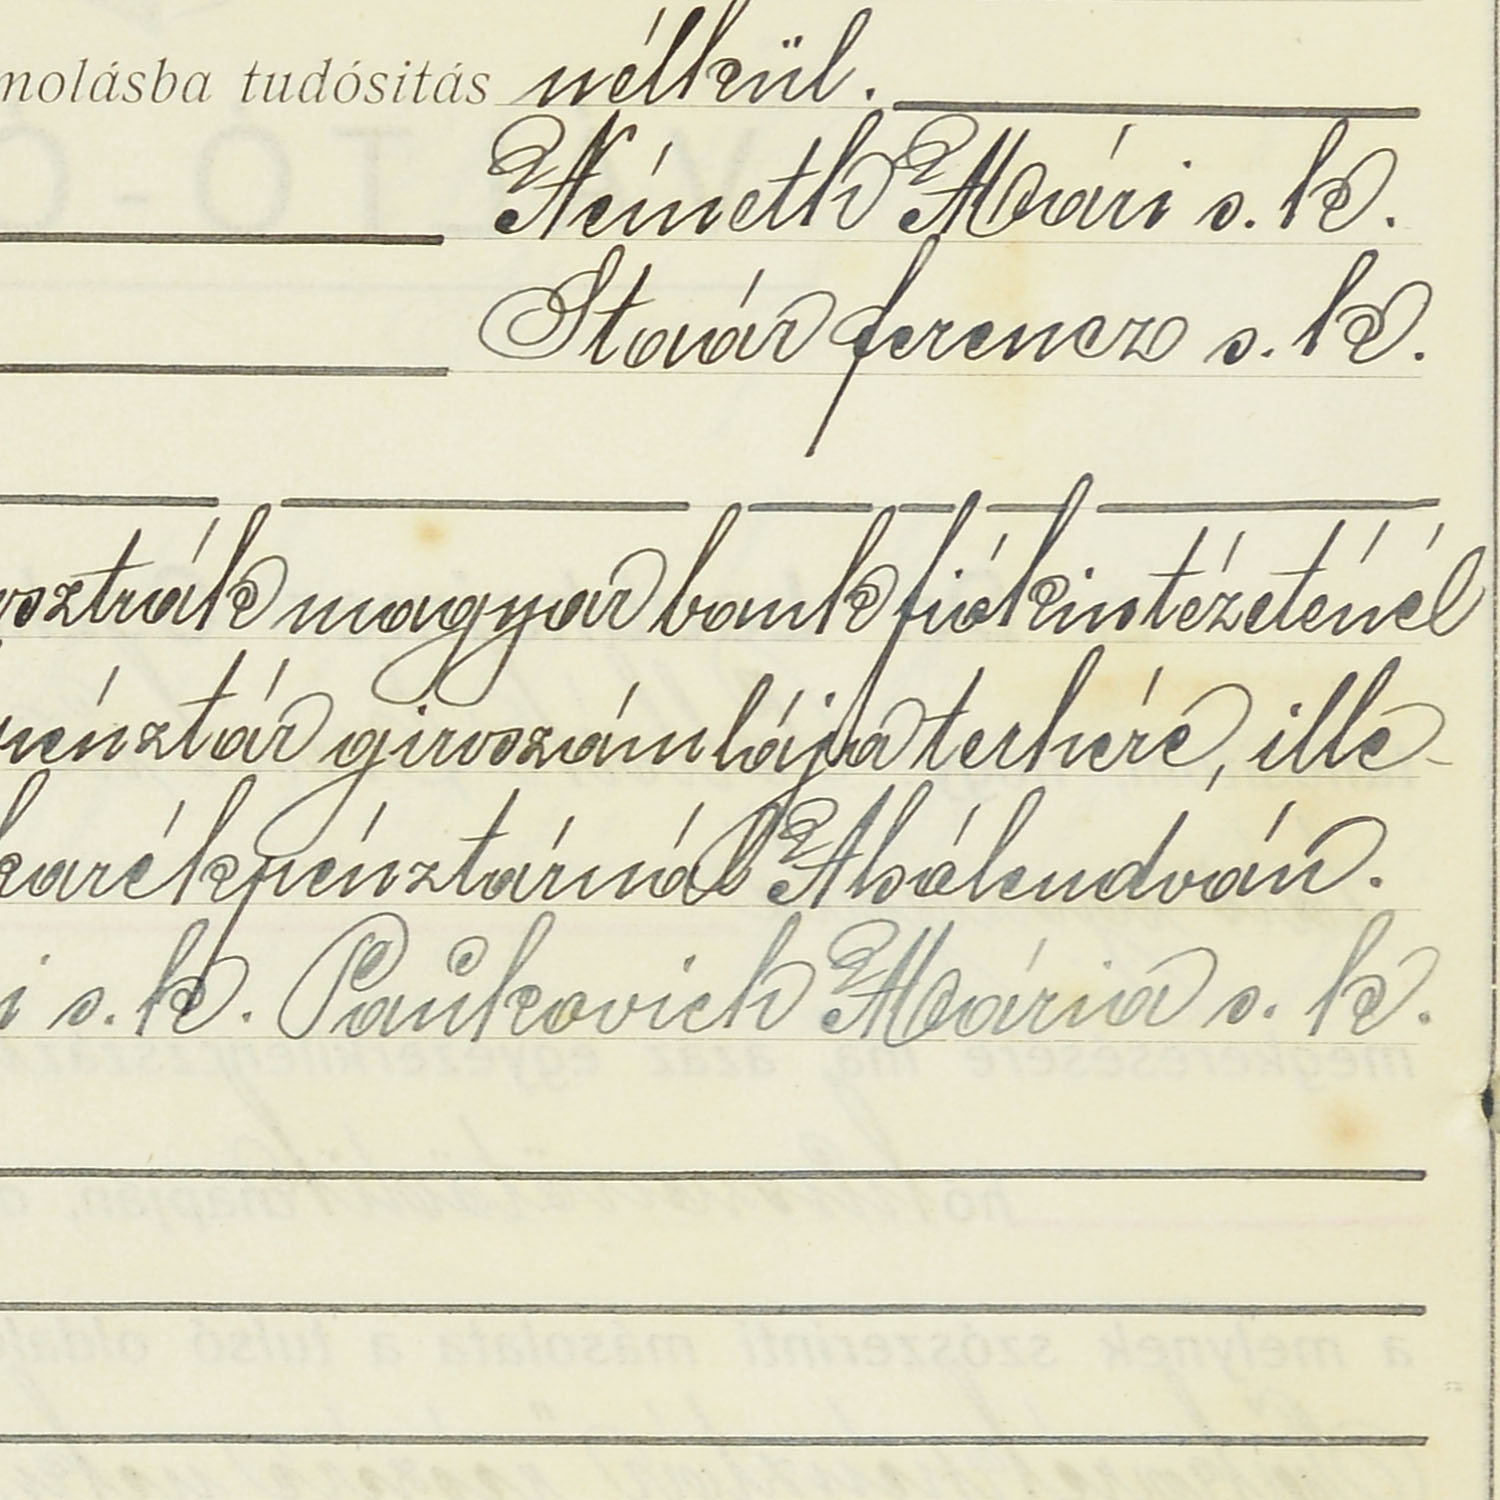 molásba tudósitás nélkül.
Németh Mári s. k.
Stavár ferencz s. k.
osztrák magyar bank fiókintézeténél
pénztár giroszámlája terhére, ille-
karékpénztárnál Alsólendván.
i s. k. Paukovich Mária s. k.